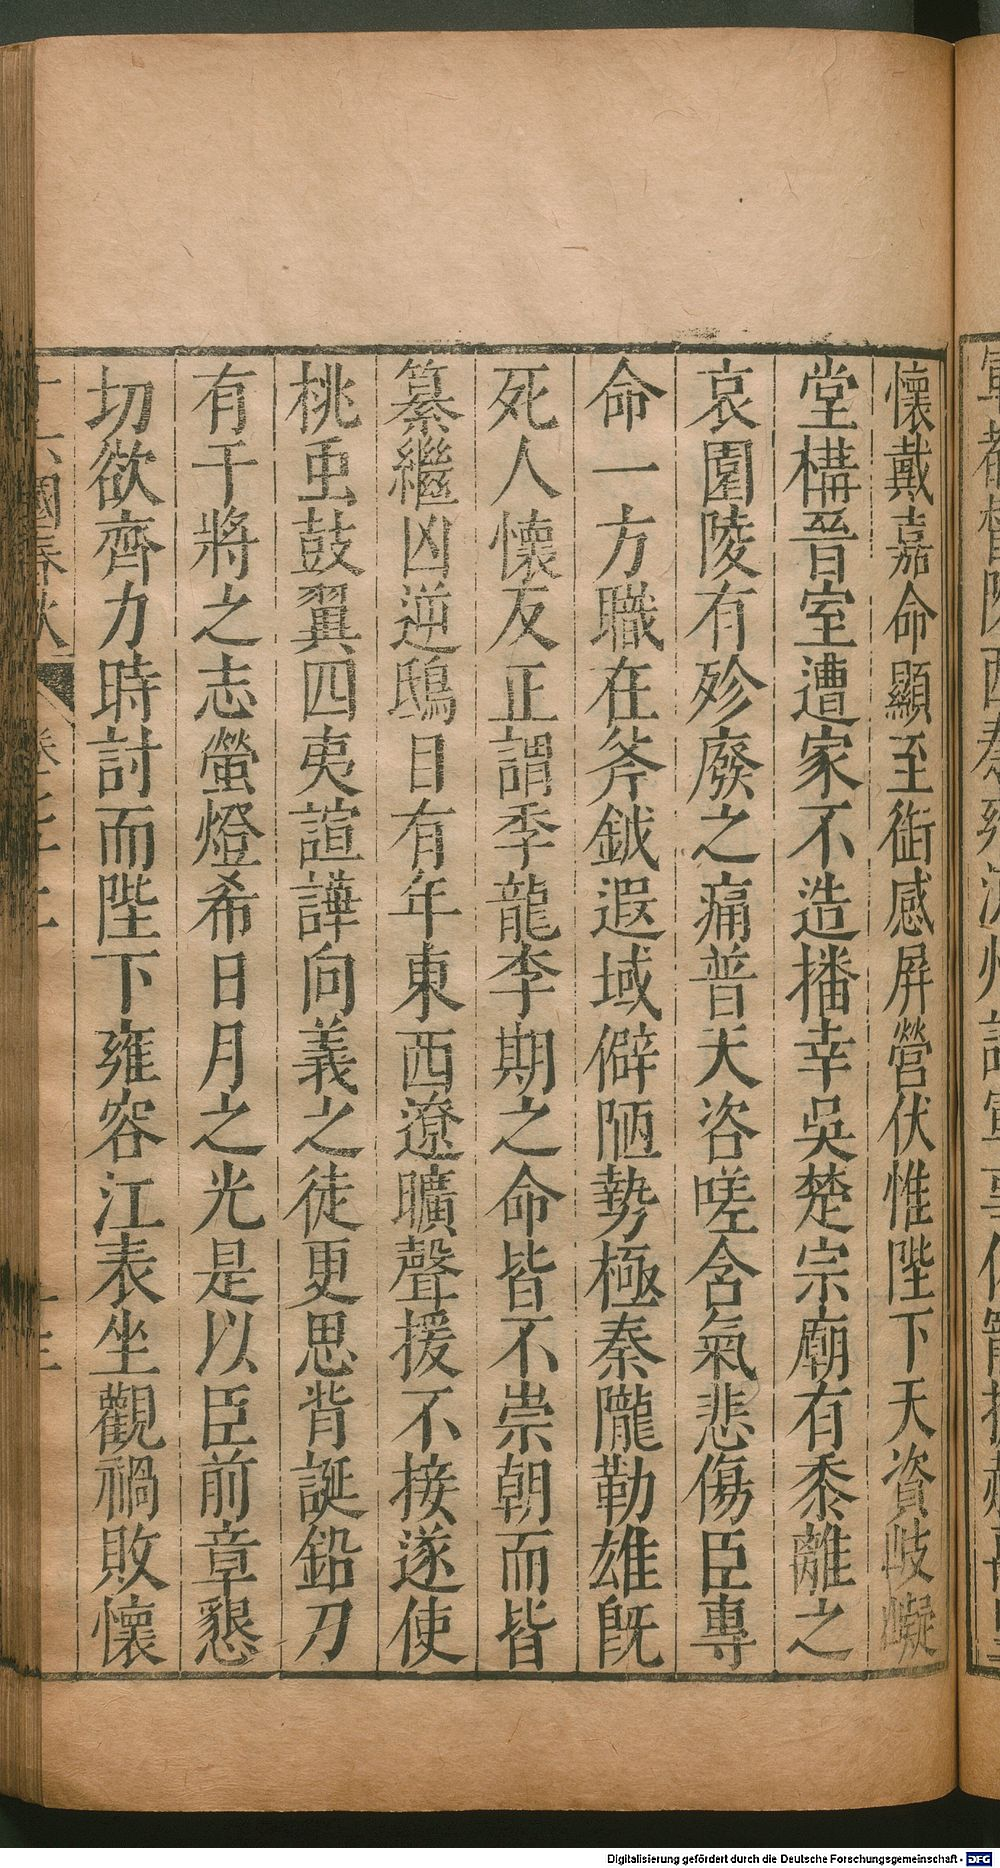 懷戴嘉命顯至銜感屏營伏惟陛下天資岐嶷
堂構晉室遭家不造播幸吳楚宗廟有黍離之
哀園陵有殄廢之痛普天咨嗟含氣悲傷臣專
命一方職在斧鉞遐域僻陋勢極秦隴勒雄既
死人懷反正謂季龍李期之命皆不崇朝而皆
纂繼凶逆鴟目有年東西遼曠聲援不接遂使
桃虫鼓翼四夷諠譁向義之徒更思背誕鉛刀
有干將之志螢燈希日月之光是以臣前章懇
切欲齊力時討而陛下雍容江表坐觀禍敗懷
十六國春秋
Digitalisierung gefördert durch die Deutsche Forschungsgemeinschaft - DFG